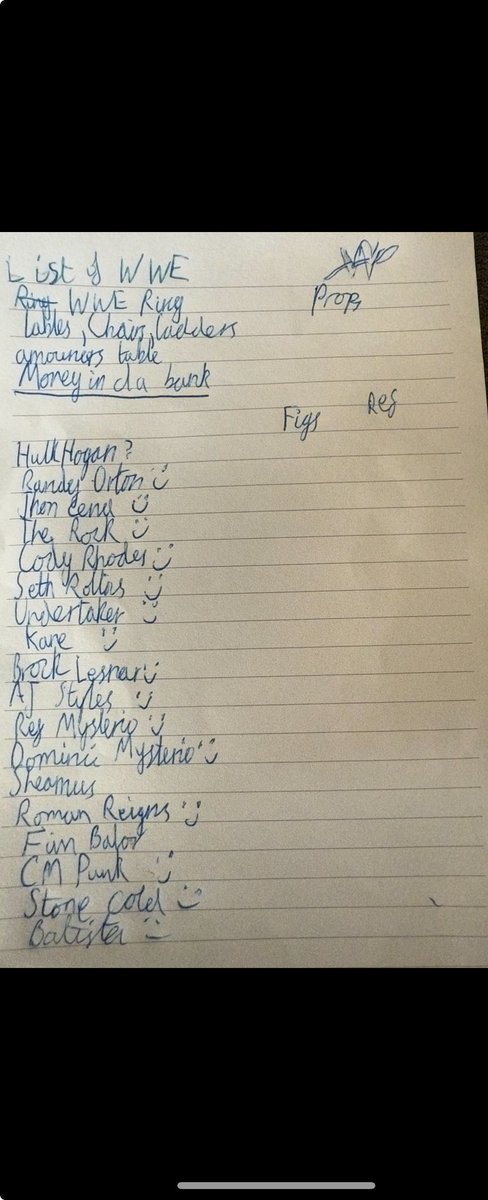 List of WWE
Ring WWE Ring
Props
tables, Chairs, ladders
amouners table
Money in da bank
Figs
Ref
Hulk Hogan?
Randy Orton
Jhon Cena
The Rock
Cody Rhodes
Seth Rollins
Undertaker
Kane
Brock Lesnar
AJ Styles
Rey Mysterio
Dominic Mysterio
Sheamus
Roman Reigns
Finn Balor
CM Punk
Stone Cold
Batista